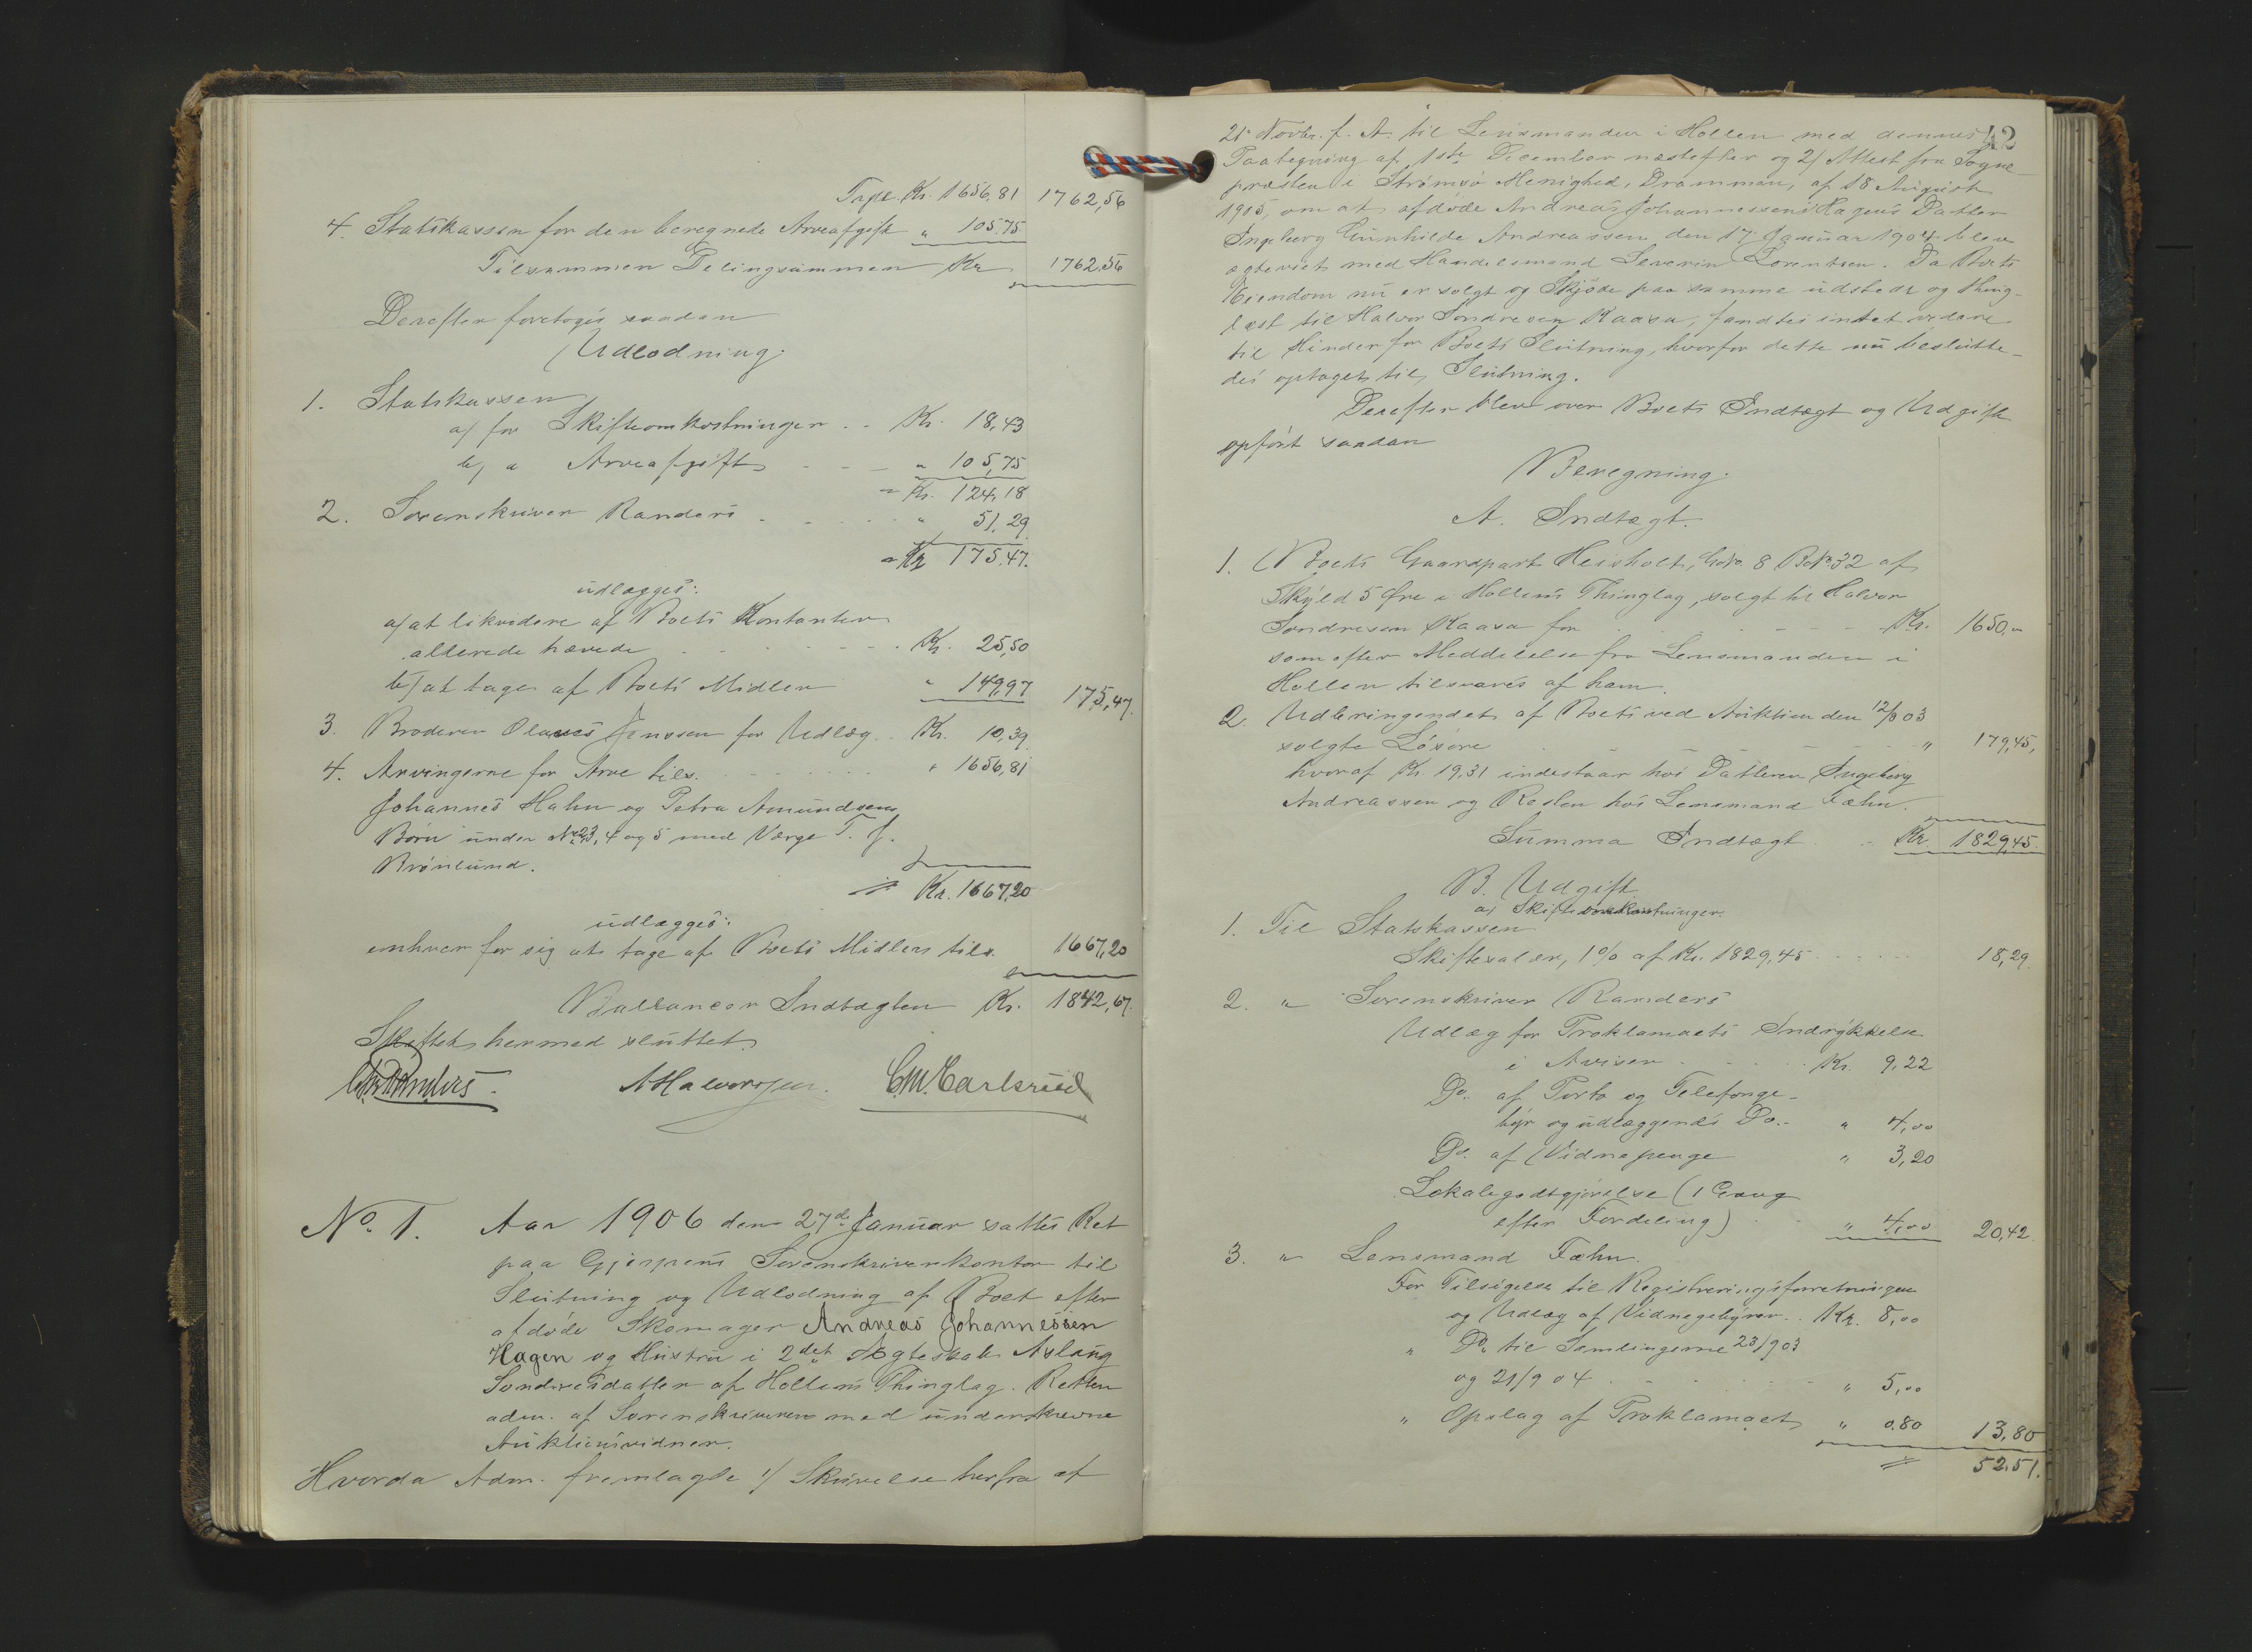 Trpt. Kr. 1656,81 1762,56
4. Statskassen for den beregnede Arveafgift " 105.75
Tilsammen Delingssummen Kr 1762,56
Derefter foretoges saadan
Udlodning.
1. Statskassen
a/ for Skifteomkostninger . . Kr. 18,43
b/ " Arveafgift - - - " 105,75
= Kr. 124,18
2. Sorenskriver Randers - - - " 51,29
= Kr 175.47.
udlægges:
a/ at likvidere af Boets Kontanter
allerede hævede - - - Kr. 25,50
b/ at tage af Boets Midler " 149,97 175,47.
3. Broderen Olaves Jenssen for Udlæg . Kr. 10,39
4. Arvingerne for Arv tils. - - - " 1656,81
Johannes Hahn og Petra Amundsens
Børn under No 2, 3, 4 og 5 med Værge T. J.
Brønlund.
= Kr. 1667,20
udlægges:
enhver for sig at tage af Boets Midler tils. 1667,20
Ballancer Indtægten Kr. 1842,67.
Skiftet hermed sluttet.
Chr Randers. AHalvorsen. C.M. Carlsrud
No. 1. Aar 1906 den 27de Januar sattes Ret
paa Gjerpens Sorenskriverkontor til
Slutning og Udlodning af Boet efter
afdøde Skomager Andreas Johannessen
Hagen og Hustru i 2det Ægteskab Aslaug
Sondresdatter af Hollens Thinglag. Retten
adm. af Sorenskriveren med underskrevne
Auktionsvidner.
Hvorda Adm. fremlagde 1/ Skrivelse herfra af
42
21. Novbr. f. A. til Lensmanden i Hollen med dennes
Paategning af 1ste December næstefter og 2/ Attest fra Sogne-
præsten i Strømsø Menighed, Drammen, af 18 August
1905, om at afdøde Andreas Johannessens Hagens Datter
Ingeborg Gunhilde Andreassen den 17 Januar 1904 blev
ægteviet med Handelsmand Severin Lorentsen. Da Boets
Eiendom nu er solgt og Skjøde paa samme udstedt og thing-
læst til Halvor Sondresen Kaasa, fandtes intet videre
til Hinder for Boets Slutning, hvorfor dette nu beslutte-
des optaget til Slutning.
Derefter blev over Boets Indtægt og Udgift
opført saadan
Beregning.
A. Indtægt.
1. Boets Gaardpart Heisholt, Gno. 8 Bno 32 af
Skyld 5 Øre i Hollens Thinglag, solgt til Halvor
Sondresen Kaasa for - - - Kr. 1650,"
som efter Meddelelse fra Lensmanden i
Hollen tilsvares af ham.
2. Udbringendet af Boets ved Auktion den 12/3 03
solgte Løsøre - - - " 179,45,
hvoraf Kr. 19,31 indestaar hos Datteren Ingeborg
Andreassen og Resten hos Lensmand Fæhn.
Summa Indtægt . . Kr. 1829,45.
B. Udgift
a/ Skifteomkostninger.
1. Til Statskassen
Skiftesalær, 1% af Kr. 1829,45 . . . 18,29
2. " Sorenskriver Randers
Udlæg for Proklamaets Indrykkelse
i Aviser . . . Kr. 9,22
Do. af Porto og Telefonge-
byr og udlæggendes Do. . " 4,00
Do. af Vidnepenge " 3,20
Lokalegodtgjørelse (1 Gang
efter Fordeling) . . " 4,00 20,42.
3. " Lensmand Fæhn.
For Tilsigelse til Registreringsforretningen
og Udlæg af Vidnegebyrer . . Kr. 8,00
" Do. til Samlingerne 23/9 03
og 21/9 04 - - - " 5,00
" Opslag af Proklamaet " 0.80 13,80
= 52,51.